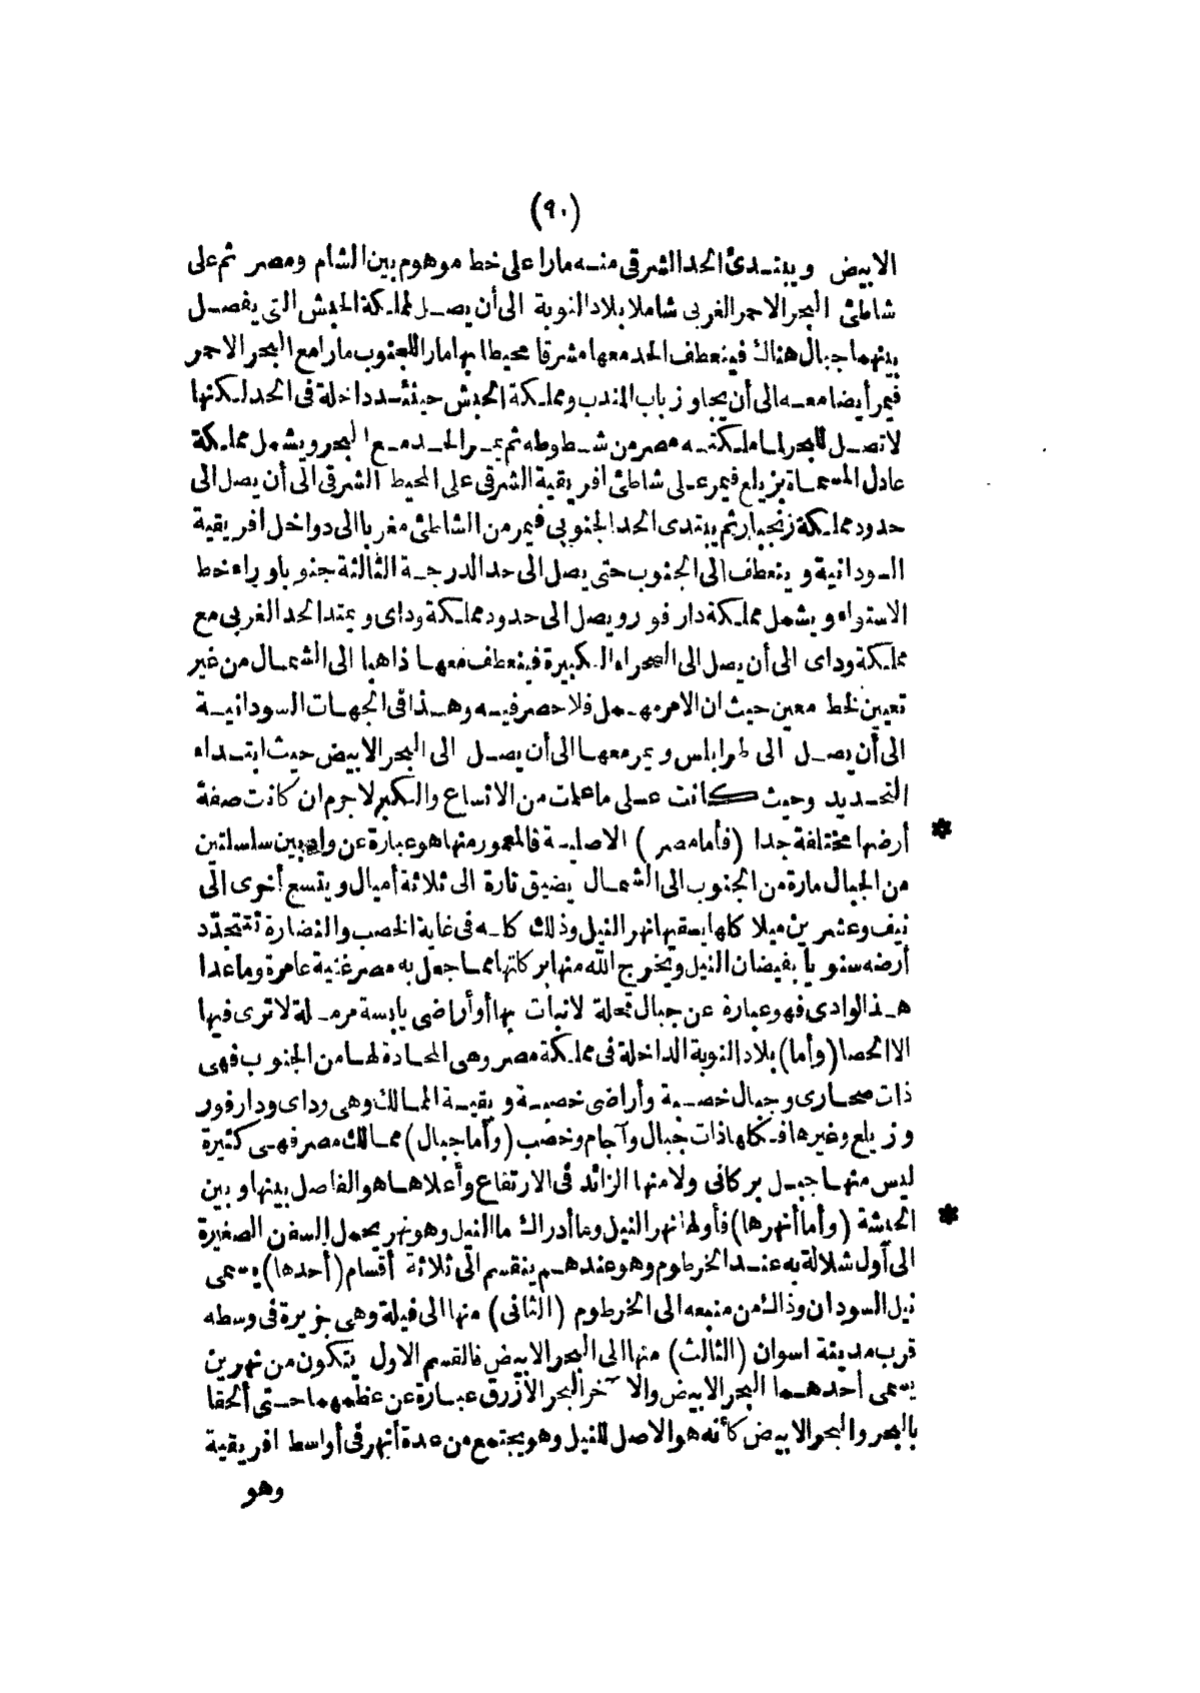 (٩٠)
الابيض ويبتدئ الحد الشرقى منه مارا على خط موهوم بين الشام ومصر ثم على
شاطئ البحر الاحمر الغربى شاملا بلاد النوبة الى أن يصل لمملكة الحبش التى يفصل
بينهما جبال هناك فينعطف الحد معها مشرقا محيطا بها مارا للجنوب مارا مع البحر الاحمر
فيمر أيضا معه الى أن يجاوز باب المندب ومملكة الحبش حينئذ داخلة فى الحد لكنها
لا تصل للبحر لما ملكته مصر من شطوطه ثم يمر الحد مع البحر ويشمل مملكة
عادل المسماة بزيلع فيمر على شاطئ افريقية الشرقى على المحيط الشرقى الى أن يصل الى
حدود مملكة زنجبار ثم يبتدى الحد الجنوبى فيمر من الشاطئ مغربا الى دواخل افريقية
السودانية وينعطف الى الجنوب حتى يصل الى حد الدرجة الثالثة جنوبا وراء خط
الاستواء ويشمل مملكة دار فور ويصل الى حدود مملكة وداى ويمتد الحد الغربى مع
مملكة وداى الى أن يصل الى الصحراء الكبيرة فينعطف معها ذاهبا الى الشمال من غير
تعيين لخط معين حيث ان الامر مهمل فلا حصر فيه وهذا فى الجهات السودانية
الى أن يصل الى طرابلس ويمر معها الى أن يصل الى البحر الابيض حيث ابتداء
التحديد وحيث كانت على ما علمت من الاتساع والكبر لا جرم ان كانت صفة
* أرضها مختلفة جدا (فأما مصر) الاصلية فالمعمور منها هو عبارة عن واد بين سلسلتين
من الجبال مارة من الجنوب الى الشمال يضيق تارة الى ثلاثة أميال ويتسع أخرى الى
نيف وعشرين ميلا كلها يسقيها نهر النيل وذلك كله فى غاية الخصب والنضارة تتجدّد
أرضه سنويا بفيضان النيل ويخرج الله منها بركاتها مما جعل به مصر غنية عامرة وما عدا
هذا الوادى فهو عبارة عن جبال قحلة لا نبات بها أو أراضى يابسة مرملة لا ترى فيها
الا الحصا (وأما) بلاد النوبة الداخلة فى مملكة مصر وهى المحادة لها من الجنوب فهى
ذات صحارى وجبال خصبة وأراضى خصبة وبقية الممالك وهى وداى ودارفور
وزيلع وغيرها فكلها ذات جبال وآجام وخصب (وأما جبال) ممالك مصر فهى كثيرة
ليس منها جبل بركانى ولا منها الزائد فى الارتفاع وأعلاها هو الفاصل بينها وبين
* الحبشة (وأما أنهرها) فأولها نهر النيل وما أدراك ما النيل وهو نهر يحمل السفن الصغيرة
الى أول شلالة به عند الخرطوم وهو عندهم ينقسم الى ثلاثة أقسام (أحدها) يسمى
نيل السودان وذلك من منبعه الى الخرطوم (الثانى) منها الى فيلة وهى جزيرة فى وسطه
قرب مدينة اسوان (الثالث) منها الى البحر الابيض فالقسم الاول يتكون من نهرين
يسمى أحدهما البحر الابيض والآخر البحر الازرق عبارة عن عظمهما حتى ألحقا
بالبحر والبحر الابيض كأنه هو الاصل للنيل وهو يجتمع من عدة أنهر فى أواسط افريقية
وهو